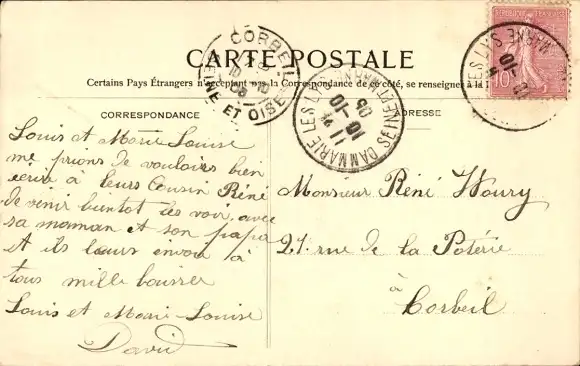 CARTE POSTALE
Certains Pays Étrangers n'acceptant pas la Correspondance de ce côté, se renseigner à la
CORRESPONDANCE
ADRESSE
CORBEIL
SEINE ET OISE
DAMMARIE LES LYS
SEINE ET MARNE
11
16 -10
06
10
Louis et Marie Louise
me prions de vouloirs bien
ecrir à leurs Cousin Réné
de venir bientot les voir avec
sa maman et son papa
et ils leurs envoi à
tous mille baiser
Louis et Marie-Louise
David
Monsieur Réné Houry
27 rue de la Poterie
à
Corbeil